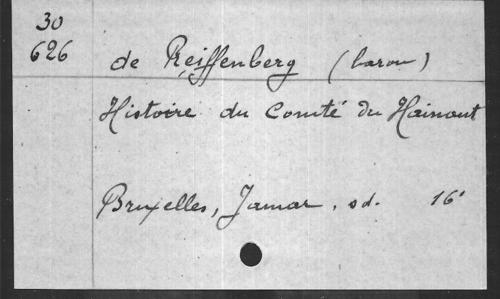 30
626
de Reiffenberg (baron)
Histoire du Comté du Hainaut
Bruxelles, Jamar, sd. 16°